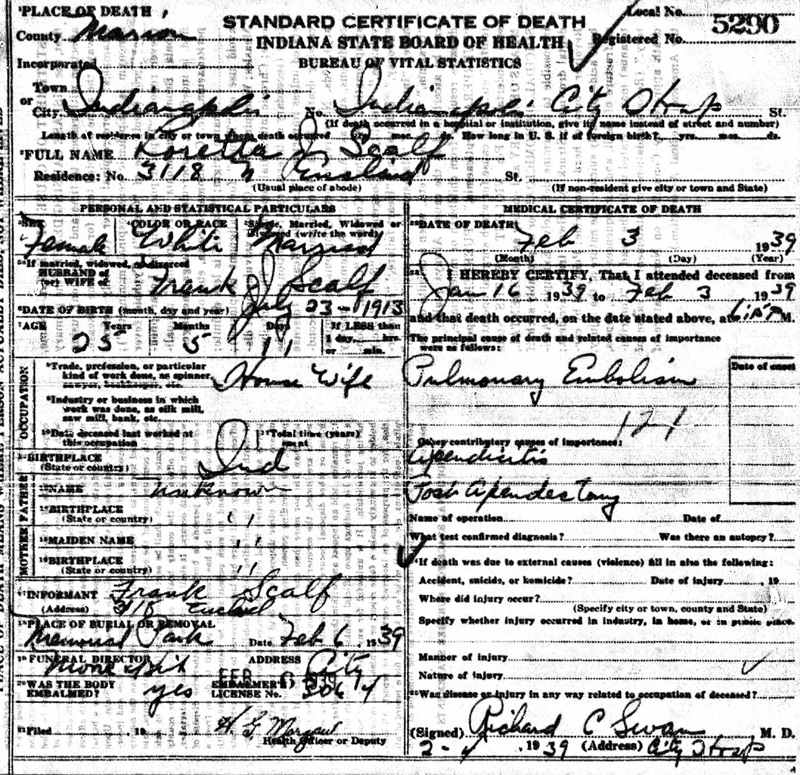 ¹PLACE OF DEATH
County Marion
Incorporated
Town
or
City Indianapolis
STANDARD CERTIFICATE OF DEATH
INDIANA STATE BOARD OF HEALTH
BUREAU OF VITAL STATISTICS
Local No.
Registered No. 5290
No. Indianapolis City Hosp St.
(If death occurred in a hospital or institution, give its name instead of street and number)
Length of residence in city or town where death occurred yrs. mos. ds. How long in U. S. if of foreign birth? yrs. mos. ds.
²FULL NAME Loretta J Scalf
Residence: No. 3118 N St.
(Usual place of abode) (If non-resident give city or town and State)
PERSONAL AND STATISTICAL PARTICULARS
³SEX COLOR OR RACE Single, Married, Widowed or
Divorced (write the word)
Female White Married
If married, widowed, or divorced
HUSBAND of
(or) WIFE of Frank J Scalf
⁶DATE OF BIRTH (month, day and year) July 23-1913
⁷AGE Years Months Days If LESS than
1 day, hrs.
or min.
25 5 11
OCCUPATION
⁸Trade, profession, or particular
kind of work done, as spinner,
sawyer, bookkeeper, etc. House Wife
⁹Industry or business in which
work was done, as silk mill,
saw mill, bank, etc.
¹⁰Date deceased last worked at
this occupation
¹¹Total time (years)
spent
BIRTHPLACE
(State or country) Ind
FATHER
NAME unknown
BIRTHPLACE
(State or country) " "
MOTHER
MAIDEN NAME " "
BIRTHPLACE
(State or country) " "
INFORMANT Frank Scalf
(Address)
PLACE OF BURIAL OR REMOVAL
Memorial Park Date Feb 6 1939
FUNERAL DIRECTOR ADDRESS
City
WAS THE BODY
EMBALMED? yes
EMBALMER'S
LICENSE No.
FEB 6 1939
Filed 19 H G Morgan
Health Officer or Deputy
MEDICAL CERTIFICATE OF DEATH
DATE OF DEATH
Feb 3 1939
(Month) (Day) (Year)
I HEREBY CERTIFY, That I attended deceased from
Jan 16 1939 to Feb 3 1939
and that death occurred, on the date stated above, at M.
The principal cause of death and related causes of importance
were as follows:
Date of onset
Pulmonary Embolism
121
Other contributory causes of importance:
Apendicitis
Post Apendectomy
Name of operation Date of
What test confirmed diagnosis? Was there an autopsy?
If death was due to external causes (violence) fill in also the following:
Accident, suicide, or homicide? Date of injury 19
Where did injury occur?
(Specify city or town, county and State)
Specify whether injury occurred in industry, in home, or in public place.
Manner of injury
Nature of injury
Was disease or injury in any way related to occupation of deceased?
(Signed) Richard C Swan M. D.
1939 (Address) City Hosp